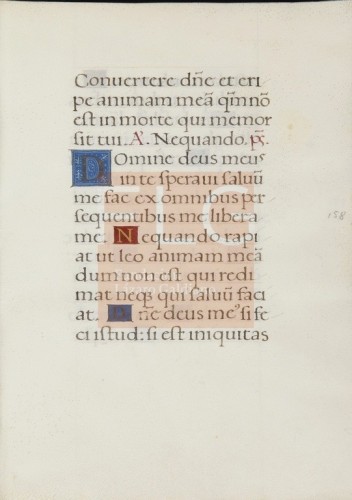 Conuertere dñe et eri
pe animam meã qm̃ nõ
est in morte qui memor
sit tui. A. Nequando. ps.
Domine deus meus
in te speraui saluũ
me fac ex omnibus per
sequentibus me libera
me. Nequando rapi
at ut leo animam meã
dum non est qui redi
mat neqȝ qui saluũ faci
at. Dñe deus meꝰ si fe
ci istud: si est iniquitas
158
FLG